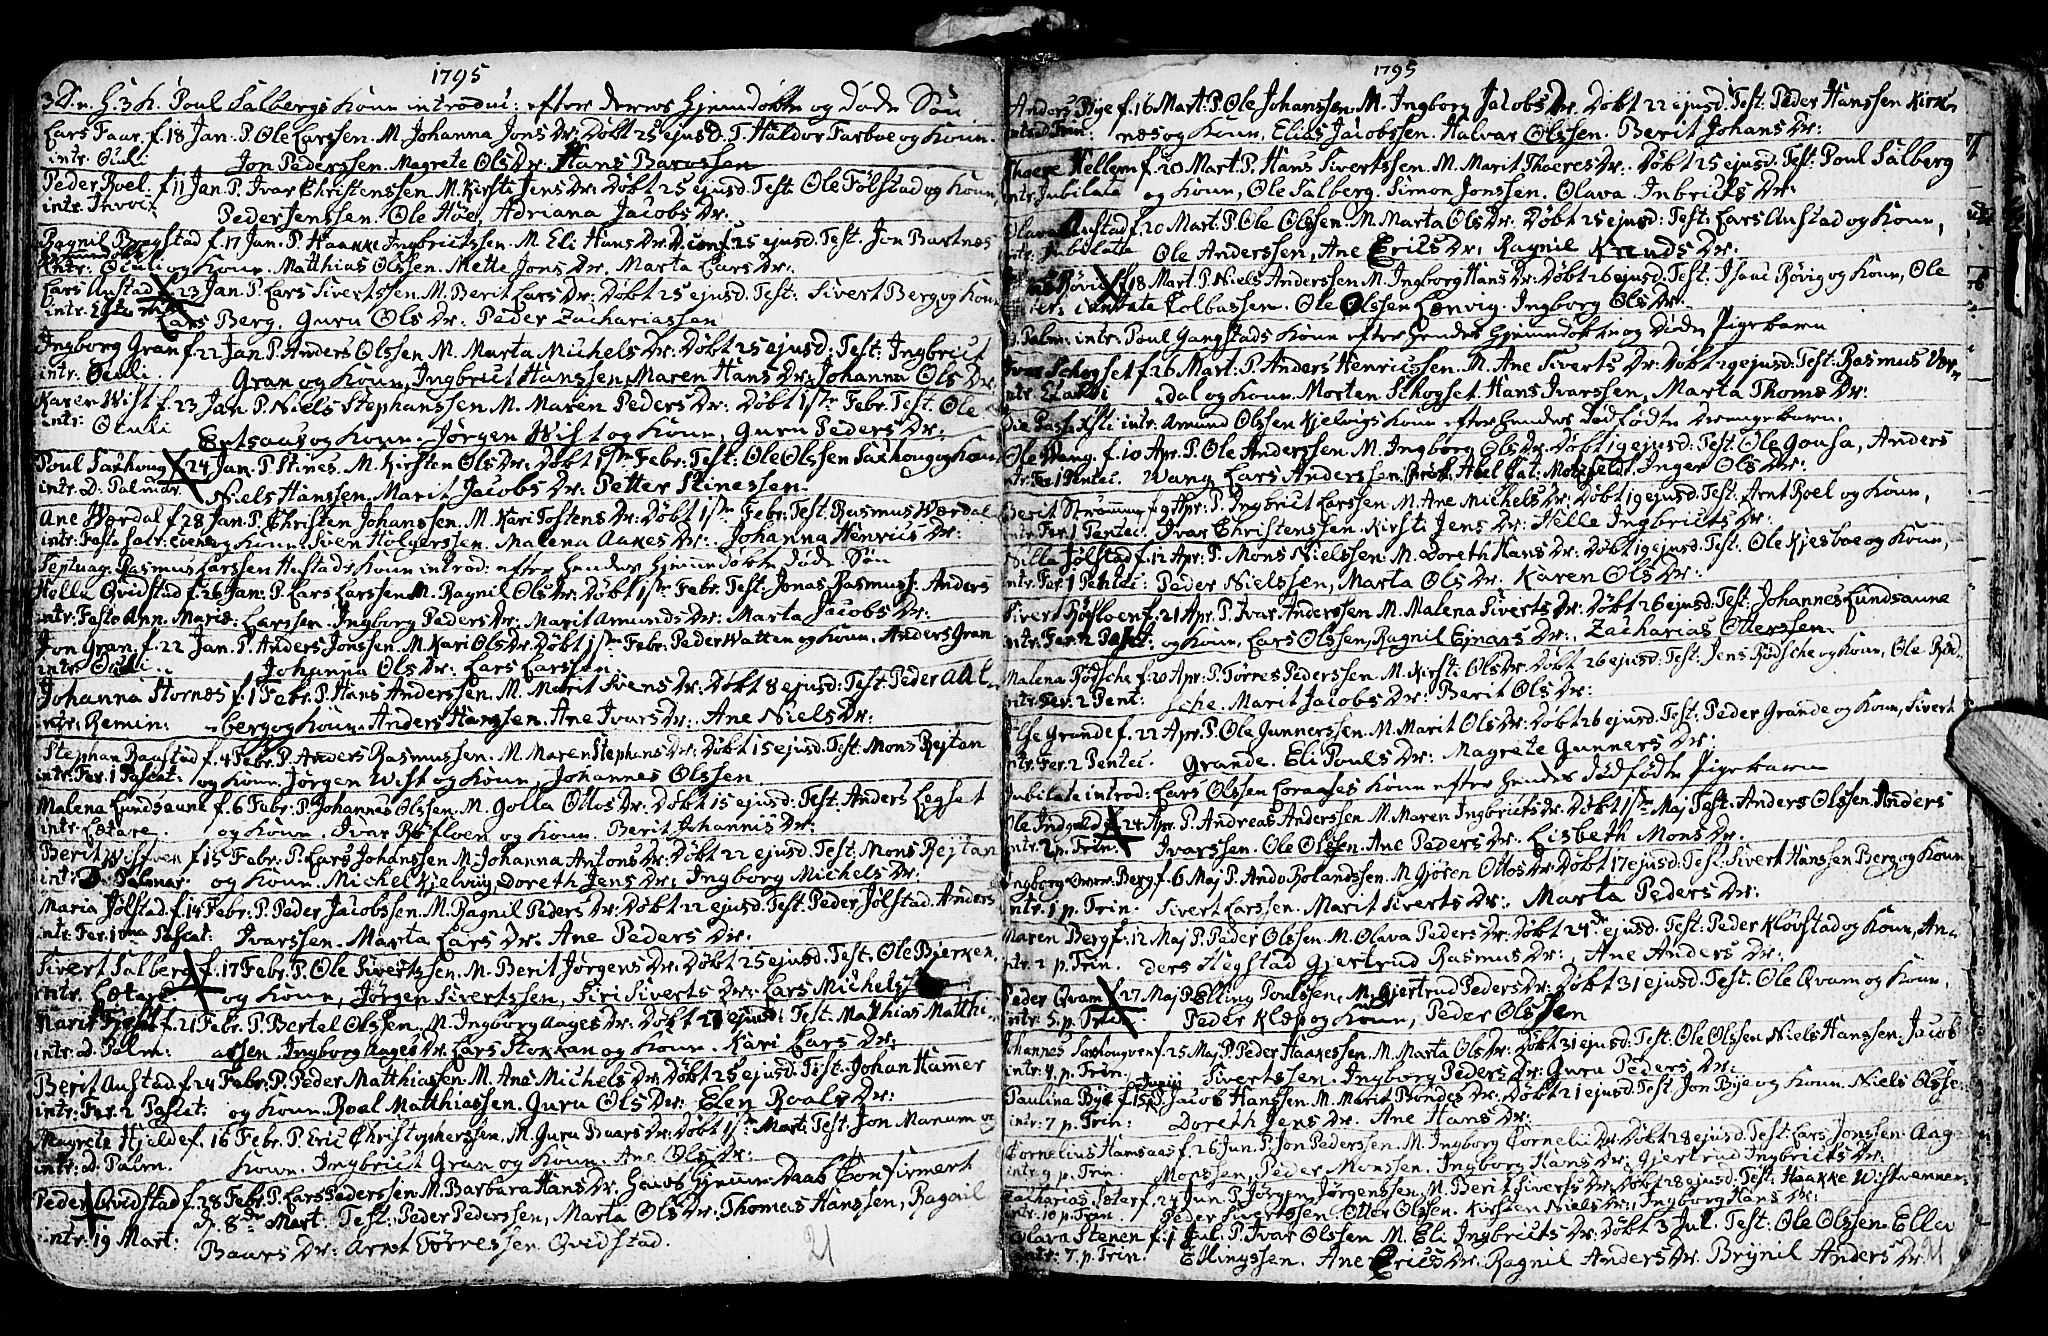 1795
3 D. n. H. 3 K. Poul Salbergs Kone introduc: efter deres hjemdøbte og døde Søn
Lars Faar. f. 18 Jan. P. Ole Larssen. M. Johanna Jons Dr. Døbt 25 ejusd. T. Haldor Farboe og Kone.
intr. Oculi Jon Pederssen. Magrete Ols Dr. Hans Barossen
Peder Roel. f. 11 Jan. P. Ivar Christenssen. M. Kirsti Jens Dr. Døbt 25 ejusd. Test. Ole Følstad og Kone,
intr. Invoc. Peder Jenssen. Ole Høe, Adriana Jacobs Dr.
Ragnil Bragstad f. 17 Jan. P. Haakke Ingbrictssen. M. Eli Hans Dr. D. conf. 25 ejusd. Test. Jon Bartnes
intr. Oculi og Kone. Matthias Olssen. Mette Jons Dr. Marta Lars Dr.
Lars Austad f. 23 Jan. P. Lars Sivertssen. M. Berit Lars Dr. Døbt 25 ejusd. Test: Sivert Berg og Kone
intr. Lars Berg. Guru Ols Dr. Peder Zachariassen
Ingborg Gran f. 22 Jan. P. Anders Olssen. M. Marta Michels Dr. Døbt 25 ejusd: Test: Ingbrict
intr. Oculi. Gran og Kone, Ingbrict Hanssen, Maren Hans Dr. Johanna Ols Dr.
Karen Wist f. 23 Jan. P. Niels Stephanssen. M. Maren Peders Dr. Døbt 1ste Febr. Test. Ole
intr. Oculi og Kone. Jørgen Wist og Kone, Guru Peders Dr.
Poul Saxhoug f. 24 Jan. P. Stines. M. Kirsten Ols Dr. Døbt 1ste Febr: Test: Ole Olssen Saxhoug og Kone,
intr. D. Palmar. Niels Hanssen. Marit Jacobs Dr. Petter Stinessen.
Ane Wærdal f. 28 Jan. P. Christen Johanssen. M. Kari Tostens Dr. Døbt 1ste Febr. Test. Rasmus Wærdal
og Kone. Sven Holgerssen. Malena Aakes Dr. Johanna Henrics Dr.
Septuag. Rasmus Larssen Austads Kone introd: efter hendes hjemdøbte døde Søn
Helle Qvidstad f. 26 Jan: P. Lars Larssen M. Ragnil Ols Dr. Døbt 1ste Febr. Test: Jonas Rasmuss: Anders
intr: Festo Ann. Mariæ: Larssen. Ingborg Peders Dr. Marit Amunds Dr. Marta Jacobs Dr.
Jon Gran. f. 22 Jan. P. Anders Jonssen. M. Kari Ols Dr. Døbt 1ste Febr: Peder Watten og Kone. Anders Gran
intr. Oculi. Johanna Ols Dr. Lars Larssen.
Johanna Hornæs f. 1 Febr. P. Hans Anderssen. M. Marit Svens Dr. Døbt 8 ejusd: Test: Peder Aal-
intr: Remin: berg og Kone. Anders Hanssen. Ane Ivars Dr. Ane Niels Dr.
Stephan Ragstad f. 4 Febr. P. Anders Rasmussen. M. Maren Stephans Dr. Døbt 15 ejusd. Test. Mons Rejtan
intr. Fer. 1 Pascat: og Kone. Jørgen Wist og Kone, Johannes Olssen.
Malena Lundsaune f. 6 Febr. P. Johannes Olssen. M. Golla Ottos Dr. Døbt 15 ejusd: Test: Anders Legset
intr. Letare. og Kone. Ivar Røsloen og Kone. Berit Johannis Dr.
Berit Wistven f. 15 Febr. P. Lars Johanssen M. Johanna Antons Dr. Døbt 22 ejusd. Test. Mons Rejtan
intr: D. Palmar og Kone. Michel Kjelving, Doreth Jens Dr. Ingborg Michels Dr.
Maria Jølstad. f. 14 Febr: P. Peder Jacobssen. M. Ragnil Peders Dr. Døbt 22 ejusd. Test. Peder Jølstad. Anders
intr. Fer. 1ma Pascat: Ivarssen. Marta Lars Dr. Ane Peders Dr.
Sivert Salberg f. 17 Febr. P. Ole Sivertssen. M. Berit Jørgens Dr. Døbt 25 ejusd. Test. Ole Bjerken.
intr. Letare. og Kone, Jørgen Sivertssen, Siri Siverts Dr. Lars Michels
f. 21 Febr. P. Bertel Olssen. M. Ingborg Aages Dr. Døbt ejusd: Test. Matthias Matthi-
intr. D. Palm: assen. Ingborg Aages Dr. Lars Stokkan og Kone. Kari Lars Dr.
Berit Austad f. 24 Febr. P. Peder Matthiassen. M. Ane Michels Dr. Døbt 25 ejusd. Test. Johan Hammer
intr: Fer. 2 Pascat: og Kone. Roal Matthiassen. Guru Ols Dr. Elen Roals Dr.
Magrete Hjelde f. 16 Febr. P. Eric Christopherssen. M. Guru Baars Dr. Døbt 1ste Mart. Test. Jon Manum og
intr. D. Palm. Kone. Ingbrict Gran og Kone. Ane Ols Dr.
Peder Qvidstad f. 28 Febr. P. Lars Pederssen. M. Barbara Hans Dr. Hans Hjemme Daab Confirmert
d. 8de Mart: Test: Peder Pederssen, Marta Ols Dr. Thomas Hanssen, Ragnil
intr. 19 Mart: Baars Dr. Arnt Tørressen Qvidstad.
21
1795
159
Anders Bye f. 16 Mart. P. Ole Johanssen. M. Ingborg Jacobs Dr. Døbt 22 ejusd. Test. Peder Hanssen Kirk-
næs og Kone, Elias Jacobssen. Halvar Olssen. Berit Johans Dr.
Thoere Hellem f. 20 Mart. P. Hans Sivertssen. M. Marit Thoeres Dr. Døbt 25 ejusd. Test: Poul Salberg
intr. Jubilate og Kone, Ole Salberg. Simon Jonssen. Olava Inbricts Dr.
Olava Austad f. 20 Mart. P. Ole Olssen. M. Marta Ols Dr. Døbt 25 ejusd: Test: Lars Austad og Kone,
intr. Jubilate Ole Anderssen, Ane Erics Dr. Ragnil Dr.
Røvig f. 18 Mart. P. Niels Anderssen M. Ingborg Hans Dr. Døbt 26 ejusd. Test: Isaac Røvig og Kone, Ole
intr: Cantate Colbussen. Ole Olssen Lænvig. Ingborg Ols Dr.
D. Palm: intr: Poul Gangstads Kone efter hendes hjemmdøbte og døde Pigebarn
Ivar Schogset f. 26 Mart. P. Anders Henricssen. M. Ane Siverts Dr. Døbt 29 ejusd. Test: Rasmus Vær-
intr. Exaudi dal og Kone. Morten Schogset. Hans Ivarssen, Marta Thoms Dr.
Die Pasch. intr: Amund Olssen Kjelvigs Kone efter hendes dødfødte Drengebarn.
Ole Wang. f. 10 Apr. P. Ole Anderssen. M. Ingborg Ols Dr. Døbt 19 ejusd: Test: Ole Gousa, Anders
intr. Fer. 1 Pentec. Wang. Lars Anderssen. Abel Cat: Motzfeldt. Inger Ols Dr.
Berit Strømmen f. 9 Apr. P. Ingbrict Larssen. M. Ane Michels Dr. Døbt 19 ejusd. Test: Arnt Roel og Kone,
intr. Fer. 1 Pentec. Ivar Christenssen. Kirsti Jens Dr. Helle Ingbricts Dr.
Silla Jølstad f. 12 Apr. P. Mons Nielssen. M. Doreth Hans Dr. Døbt 19 ejusd. Test. Ole Kjesboe og Kone,
intr. Fer. 1 Pentec: Peder Nielssen, Marta Ols Dr. Karen Ols Dr.
Sivert Røsloen f. 21 Apr. P. Ivar Anderssen M. Malena Siverts Dr. Døbt 26 ejusd: Test: Johannes Lundsaune
intr. Fer. 2 og Kone, Lars Olssen, Ragnil Ejnars Dr. Zacharias Otterssen.
Malena Rødsche f. 20 Apr: P. Tørres Pederssen. M. Kirsti Ols Dr. Døbt 26 ejusd: Test: Jens Rødsche og Kone, Ole Rød-
intr. Fer. 2 Pent: sche. Marit Jacobs Dr: Berit Ols Dr:
Else Grande f. 22 Apr. P. Ole Gunnerssen. M. Marit Ols Dr. Døbt 26 ejusd. Test: Peder Grande og Kone, Sivert
intr. Fer. 2 Pentec. Grande. Eli Pouls Dr: Magrete Gunners Dr:
Jubilate introd: Lars Olssen Loraases Kone efter hendes dødfødte Pigebarn
Ole Indgald f. 24 Apr. P. Andreas Anderssen. M. Maren Ingbricts Dr. Døbt 1ste Maj Test. Anders Olssen. Anders
intr. 2 p. Trin. Ivarssen. Ole Olssen. Ane Peders Dr. Lisbeth Mons Dr.
Ingborg Berg f. 6 Maj P. Ando Rolandssen. M. Gjøren Ottos Dr. Døbt 17 ejusd: Test: Sivert Hanssen Berg og Kone
intr. 1 p. Trin. Sivert Larssen. Marit Siverts Dr. Marta Peders Dr:
Maren Berg f. 12 Maj P. Peder Olssen. M. Olava Peders Dr. Døbt 24de ejusd. Test: Peder Kløvstad og Kone, An-
intr. 2 p. Trin. ders Hegstad. Gjertrud Rasmus Dr: Ane Anders Dr:
Peder Qvam f. 27 Maj P. Elling Poulssen, M. Gjertrud Peders Dr: Døbt 31 ejusd. Test. Ole Qvam og Kone,
intr. 5. p. Trin. Peder Klæp og Kone, Peder Olssen
Johannes Saxhougven f. 25 Maj. P. Peder Haakessen. M. Marta Ols Dr. Døbt 31 ejusd: Test: Ole Olssen. Niels Hanssen. Jacob
intr. 4. p. Trin. Sivertssen. Ingborg Peders Dr. Guru Peders Dr.
Paulina Bye f. 15 Junii P. Jacob Hanssen. M. Marit Trondes Dr. Døbt 21 ejusd. Test Jon Bye og Kone. Niels Olsse:
intr. 7 p. Trin: Doreth Jens Dr. Ane Hans Dr.
Cornelius Hamsaas f. 26 Jun. P. Jon Pederssen. M. Ingborg Cornelii Dr. Døbt 28 ejusd. Test: Lars Jonssen. Aage
intr. 9 p. Trin. Monssen, Peder Monssen. Ingborg Hans Dr. Gjertrud Ingbricts Dr.
Zacharias Sæter f. 24 Jun. P. Jørgen Jørgenssen. M. Berit Siverts Dr. Døbt 28 ejusd. Test: Haakke Wistvennen.
intr. 10 p. Trin. Peder Sivertssen. Otter Olssen. Kirsten Niels Dr. Ingborg Hans Dr.
Olava Stenen f. 1 Jul. P. Ivar Olssen M. Eli Ingbricts Dr: Døbt 5 Jul. Test: Ole Olssen. Ellev
intr: 7. p. Trin. Ellingssen. Ane Erics Dr. Ragnil Anders Dr. Brynil Anders Dr.
21